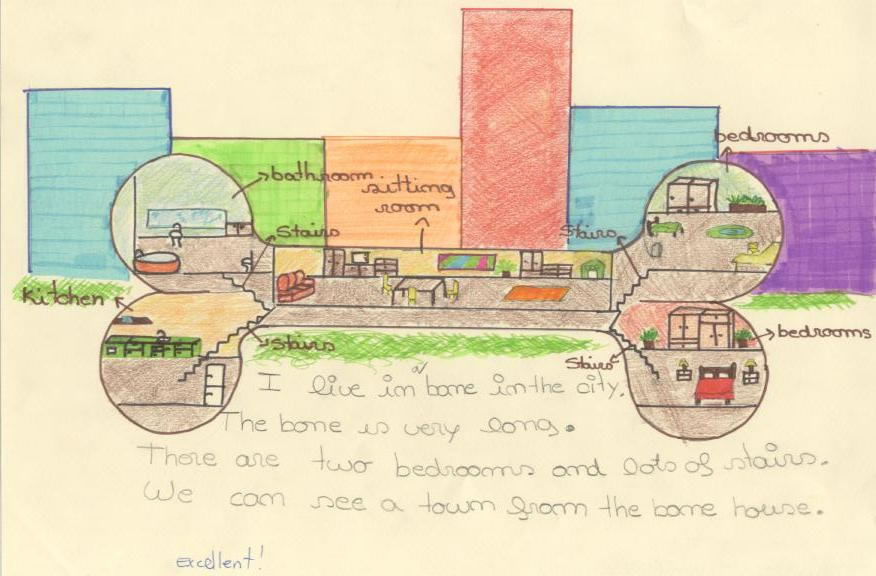 bedrooms
bathroom
sitting
room
Stairs
Stairs
Kitchen
stairs
bedrooms
Stairs
I live in a bone in the city.
The bone is very long.
There are two bedrooms and lots of stairs.
We can see a town from the bone house.
excellent!